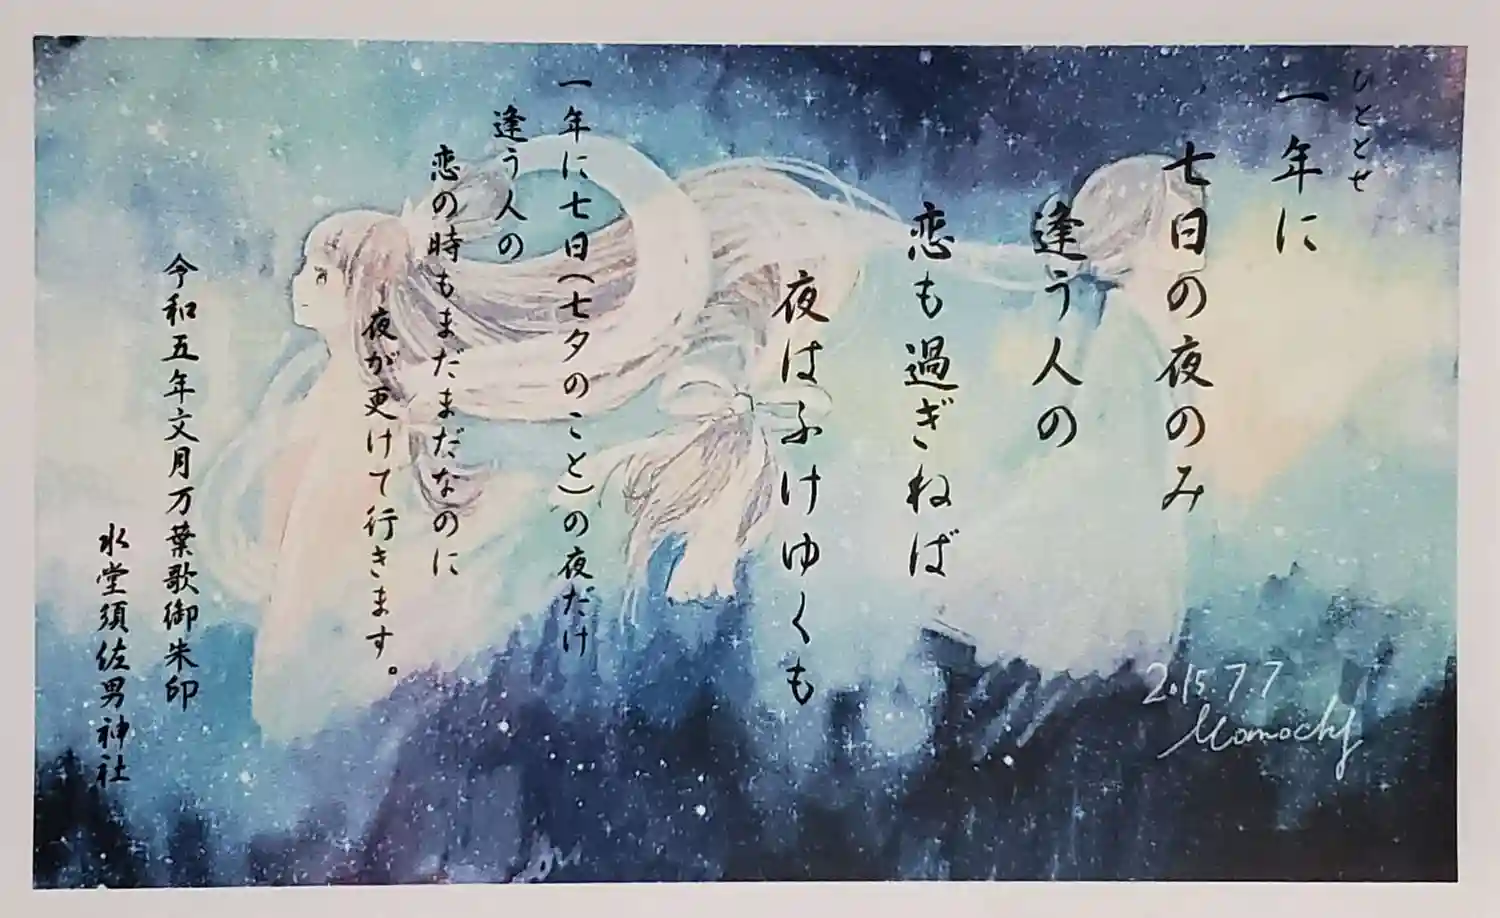 ひととせ
一年に
七日の夜のみ
逢う人の
恋も過ぎねば
夜はふけゆくも
一年に七日(七夕のこと)の夜だけ
逢う人の
恋の時もまだまだなのに
夜が更けて行きます。
令和五年文月万葉歌御朱印
水堂須佐男神社
2015.7.7
Momochy